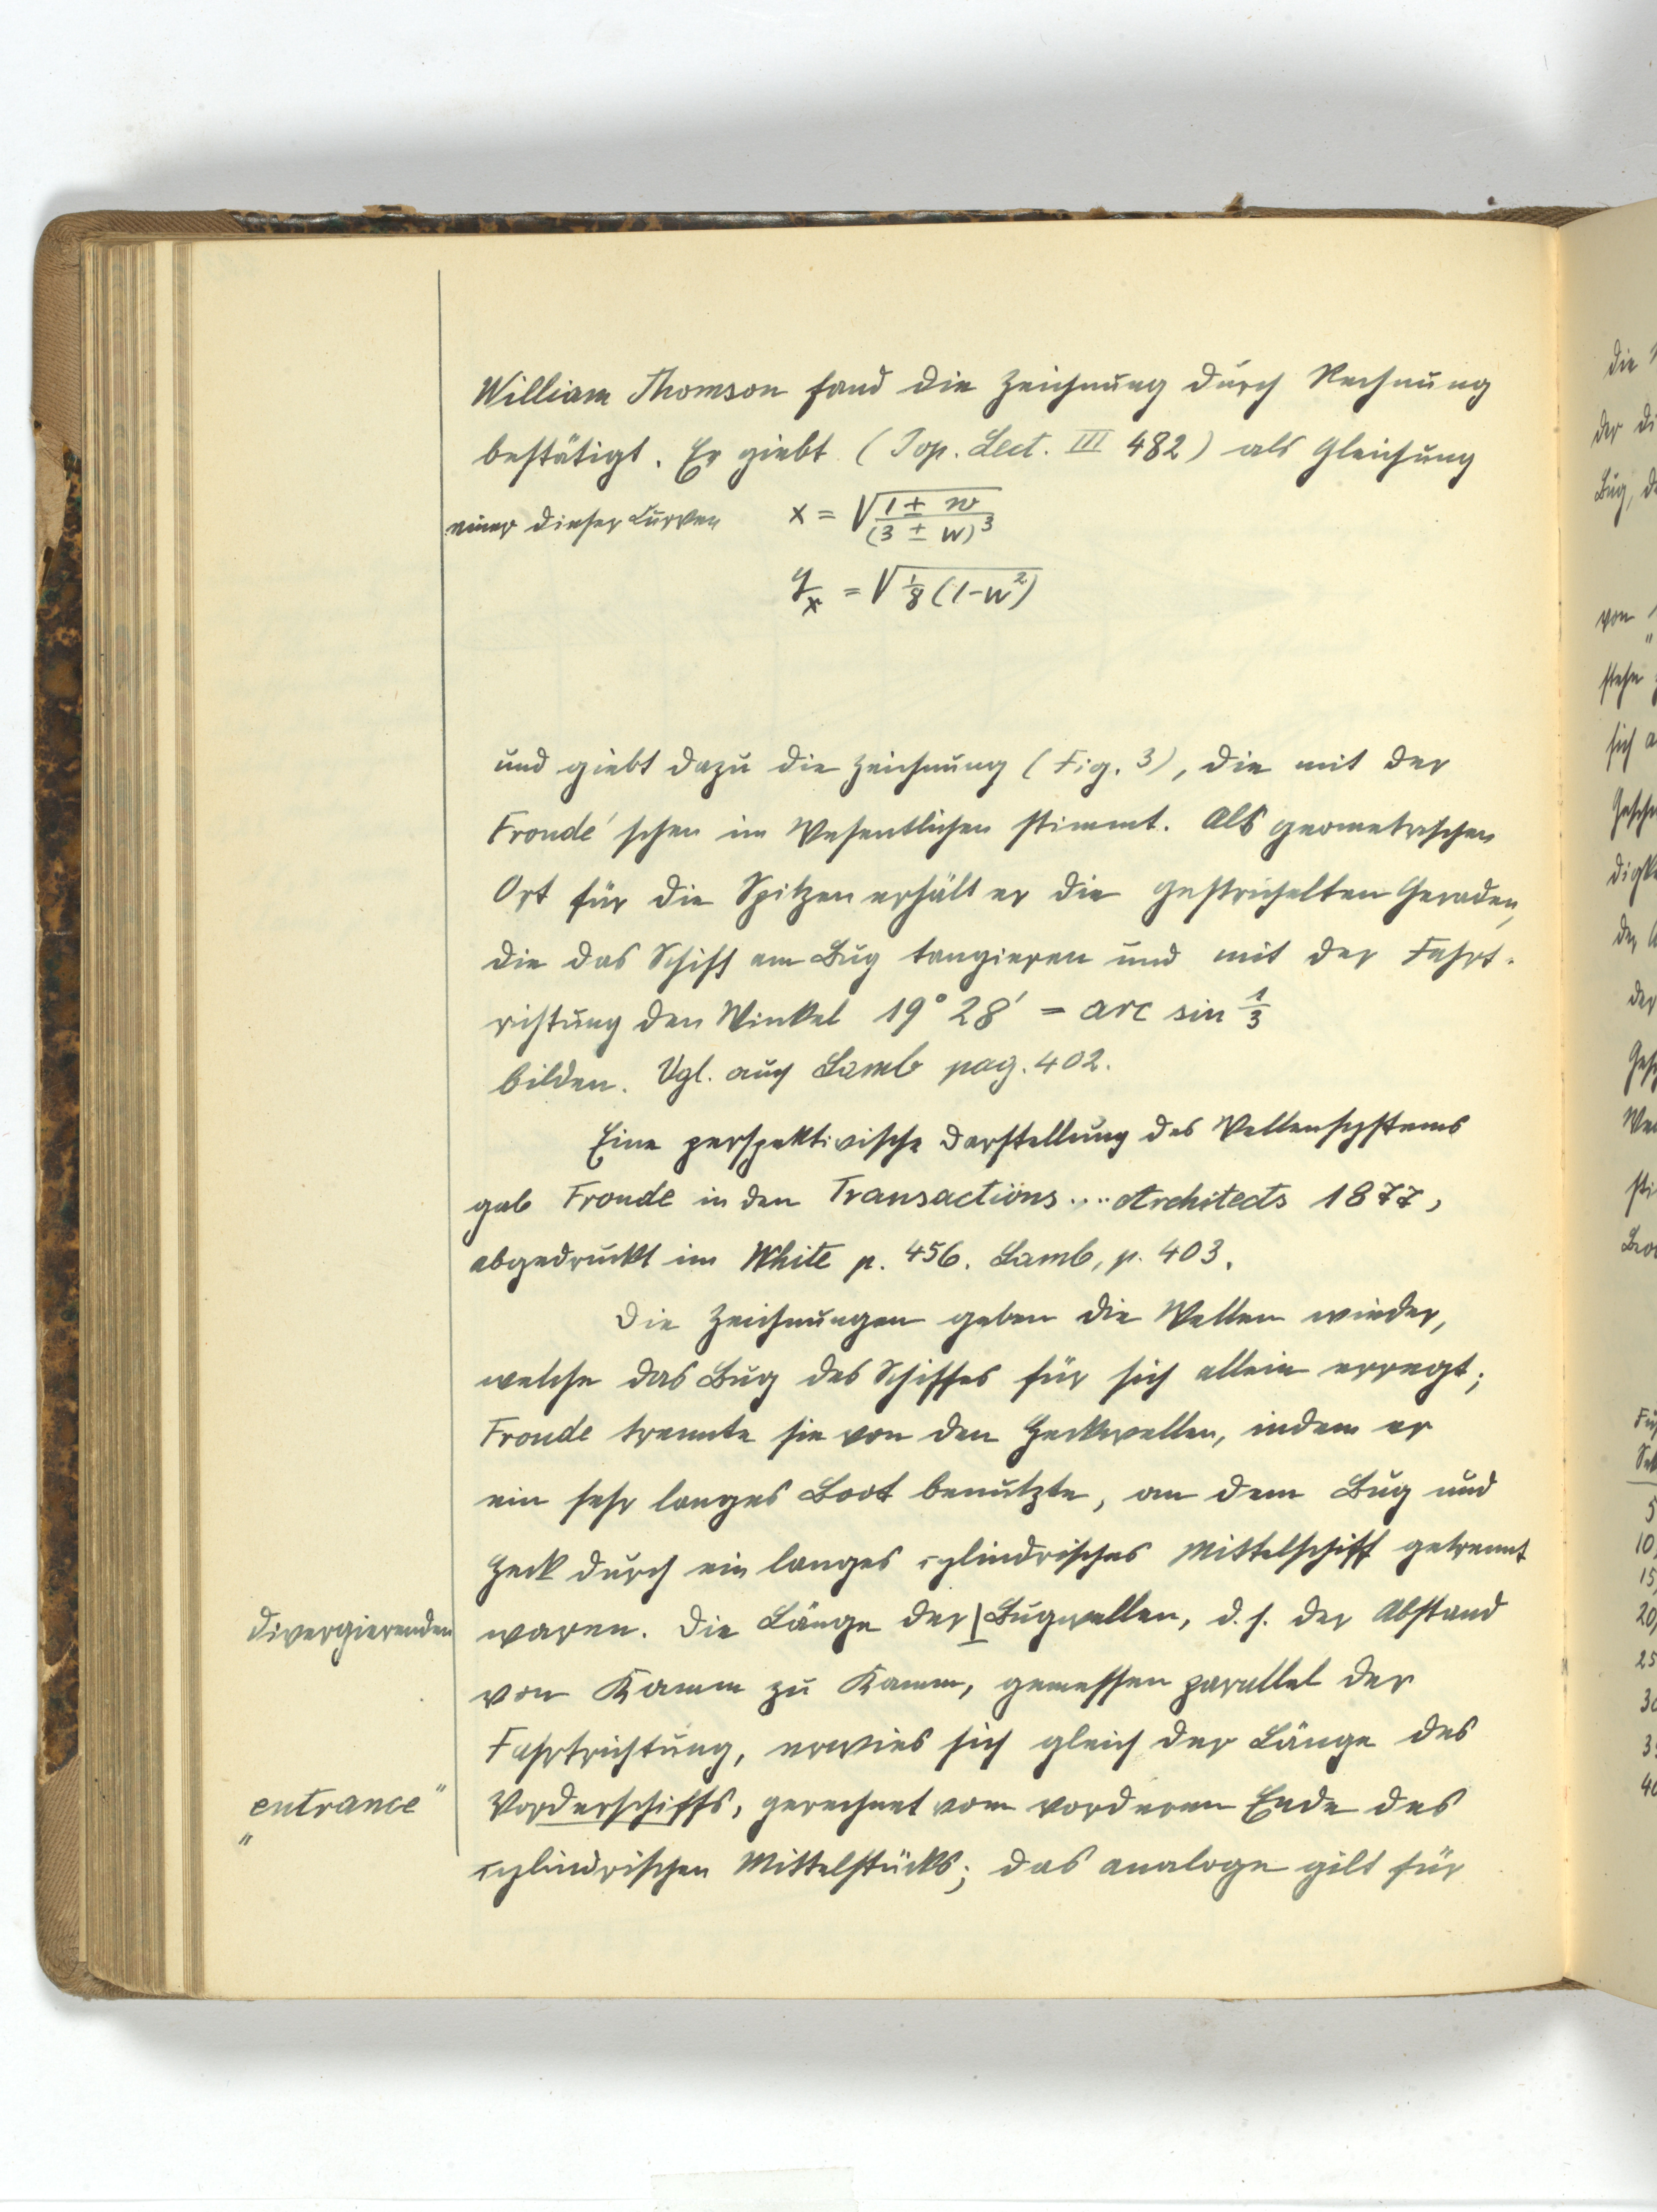 William Thomson fand die Zeichnung durch Rechnung
bestätigt. Er giebt (Pop. Lect. III 482) als Gleichung
einer dieser Curven x = √((1 ± w)/(3 ± w)³)
y/x = √(⅛(1-w²))
und giebt dazu die Zeichnung (Fig. 3), die mit der
Froude'schen im Wesentlichen stimmt. Als geometrischen
Ort für die Spitzen erhält er die gestrichelten Geraden,
die das Schiff am Bug tangieren und mit der Fahrt-
richtung den Winkel 19° 28' = arc sin 1/3
bilden. Vgl. auch Lamb pag. 402.
Eine perspektivische Darstellung des Wellensystems
gab Froude in den Transactions .... Architects 1877,
abgedruckt im White p. 456. Lamb, p. 403.
Die Zeichnungen geben die Wellen wieder,
welche das Bug des Schiffes für sich allein erregt;
Froude trennte sie von den Heckwellen, indem er
ein sehr langes Boot benutzte, an dem Bug und
Heck durch ein langes cylindrisches Mittelschiff getrennt
divergierenden
waren. Die Länge der Bugwellen, d.h. der Abstand
von Kamm zu Kamm, gemessen parallel der
Fahrtrichtung, erwies sich gleich der Länge des
„entrance"
Vorderschiffs, gerechnet vom vorderen Ende des
cylindrischen Mittelstücks; das analoge gilt für